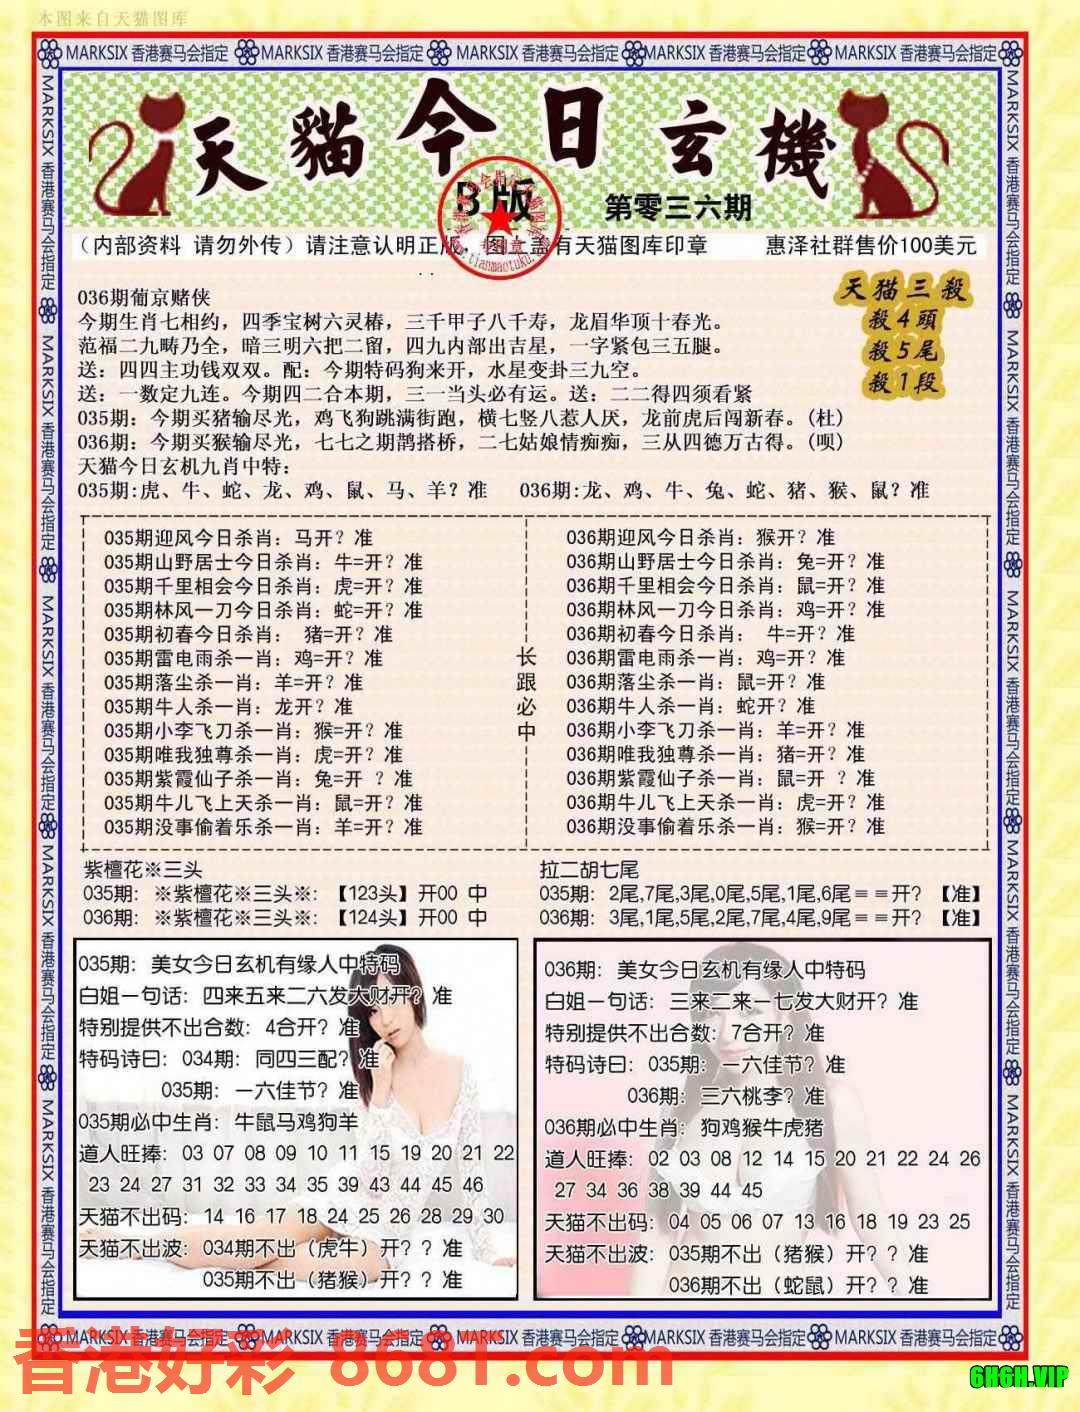 本图来自天猫图库
MARKSIX 香港赛马会指定 MARKSIX 香港赛马会指定 MARKSIX 香港赛马会指定 MARKSIX 香港赛马会指定 MARKSIX 香港赛马会指定
天貓今日玄機
B版
第零三六期
(内部资料 请勿外传) 请注意认明正版, 图上盖有天猫图库印章 惠泽社群售价100美元
www.tianmaotuku.com
天猫三殺
殺4頭
殺5尾
殺1段
036期葡京赌侠
今期生肖七相约，四季宝树六灵椿，三千甲子八千寿，龙眉华顶十春光。
范福二九畴乃全，暗三明六把二留，四九内部出吉星，一字紧包三五腿。
送：四四主功钱双双。配：今期特码狗来开，水星变卦三九空。
送：一数定九连。今期四二合本期，三一当头必有运。送：二二得四须看紧
035期：今期买猪输尽光，鸡飞狗跳满街跑，横七竖八惹人厌，龙前虎后闯新春。(杜)
036期：今期买猴输尽光，七七之期鹊搭桥，二七姑娘情痴痴，三从四德万古得。(呗)
天猫今日玄机九肖中特:
035期:虎、牛、蛇、龙、鸡、鼠、马、羊？准 036期:龙、鸡、牛、兔、蛇、猪、猴、鼠？准
035期迎风今日杀肖：马开？准
035期山野居士今日杀肖：牛=开？准
035期千里相会今日杀肖：虎=开？准
035期林风一刀今日杀肖：蛇=开？准
035期初春今日杀肖： 猪=开？准
035期雷电雨杀一肖：鸡=开？准
035期落尘杀一肖：羊=开？准
035期牛人杀一肖：龙开？准
035期小李飞刀杀一肖：猴=开？准
035期唯我独尊杀一肖：虎=开？准
035期紫霞仙子杀一肖：兔=开 ？准
035期牛儿飞上天杀一肖：鼠=开？准
035期没事偷着乐杀一肖：羊=开？准
长跟必中
036期迎风今日杀肖：猴开？准
036期山野居士今日杀肖：兔=开？准
036期千里相会今日杀肖：鼠=开？准
036期林风一刀今日杀肖：鸡=开？准
036期初春今日杀肖： 牛=开？准
036期雷电雨杀一肖：鸡=开？准
036期落尘杀一肖：鼠=开？准
036期牛人杀一肖：蛇开？准
036期小李飞刀杀一肖：羊=开？准
036期唯我独尊杀一肖：猪=开？准
036期紫霞仙子杀一肖：鼠=开 ？准
036期牛儿飞上天杀一肖：虎=开？准
036期没事偷着乐杀一肖：猴=开？准
紫檀花※三头
035期：※紫檀花※三头※：【123头】开00 中
036期：※紫檀花※三头※：【124头】开00 中
拉二胡七尾
035期：2尾,7尾,3尾,0尾,5尾,1尾,6尾==开？【准】
036期：3尾,1尾,5尾,2尾,7尾,4尾,9尾==开？【准】
035期：美女今日玄机有缘人中特码
白姐一句话：四来五来二六发大财开？准
特别提供不出合数：4合开？准
特码诗曰：034期：同四三配？准
035期：一六佳节？准
035期必中生肖：牛鼠马鸡狗羊
道人旺捧：03 07 08 09 10 11 15 19 20 21 22
23 24 27 31 32 33 34 35 39 43 44 45 46
天猫不出码：14 16 17 18 24 25 26 28 29 30
天猫不出波：034期不出（虎牛）开？？准
035期不出（猪猴）开？？准
036期：美女今日玄机有缘人中特码
白姐一句话：三来二来一七发大财开？准
特别提供不出合数：7合开？准
特码诗曰：035期：一六佳节？准
036期：三六桃李？准
036期必中生肖：狗鸡猴牛虎猪
道人旺捧：02 03 08 12 14 15 20 21 22 24 26
27 34 36 38 39 44 45
天猫不出码：04 05 06 07 13 16 18 19 23 25
天猫不出波：035期不出（猪猴）开？？准
036期不出（蛇鼠）开？？准
MARKSIX 香港赛马会指定 MARKSIX 香港赛马会指定 MARKSIX 香港赛马会指定 MARKSIX 香港赛马会指定 MARKSIX 香港赛马会指定
香港好彩 8681.com
6HGH.VIP